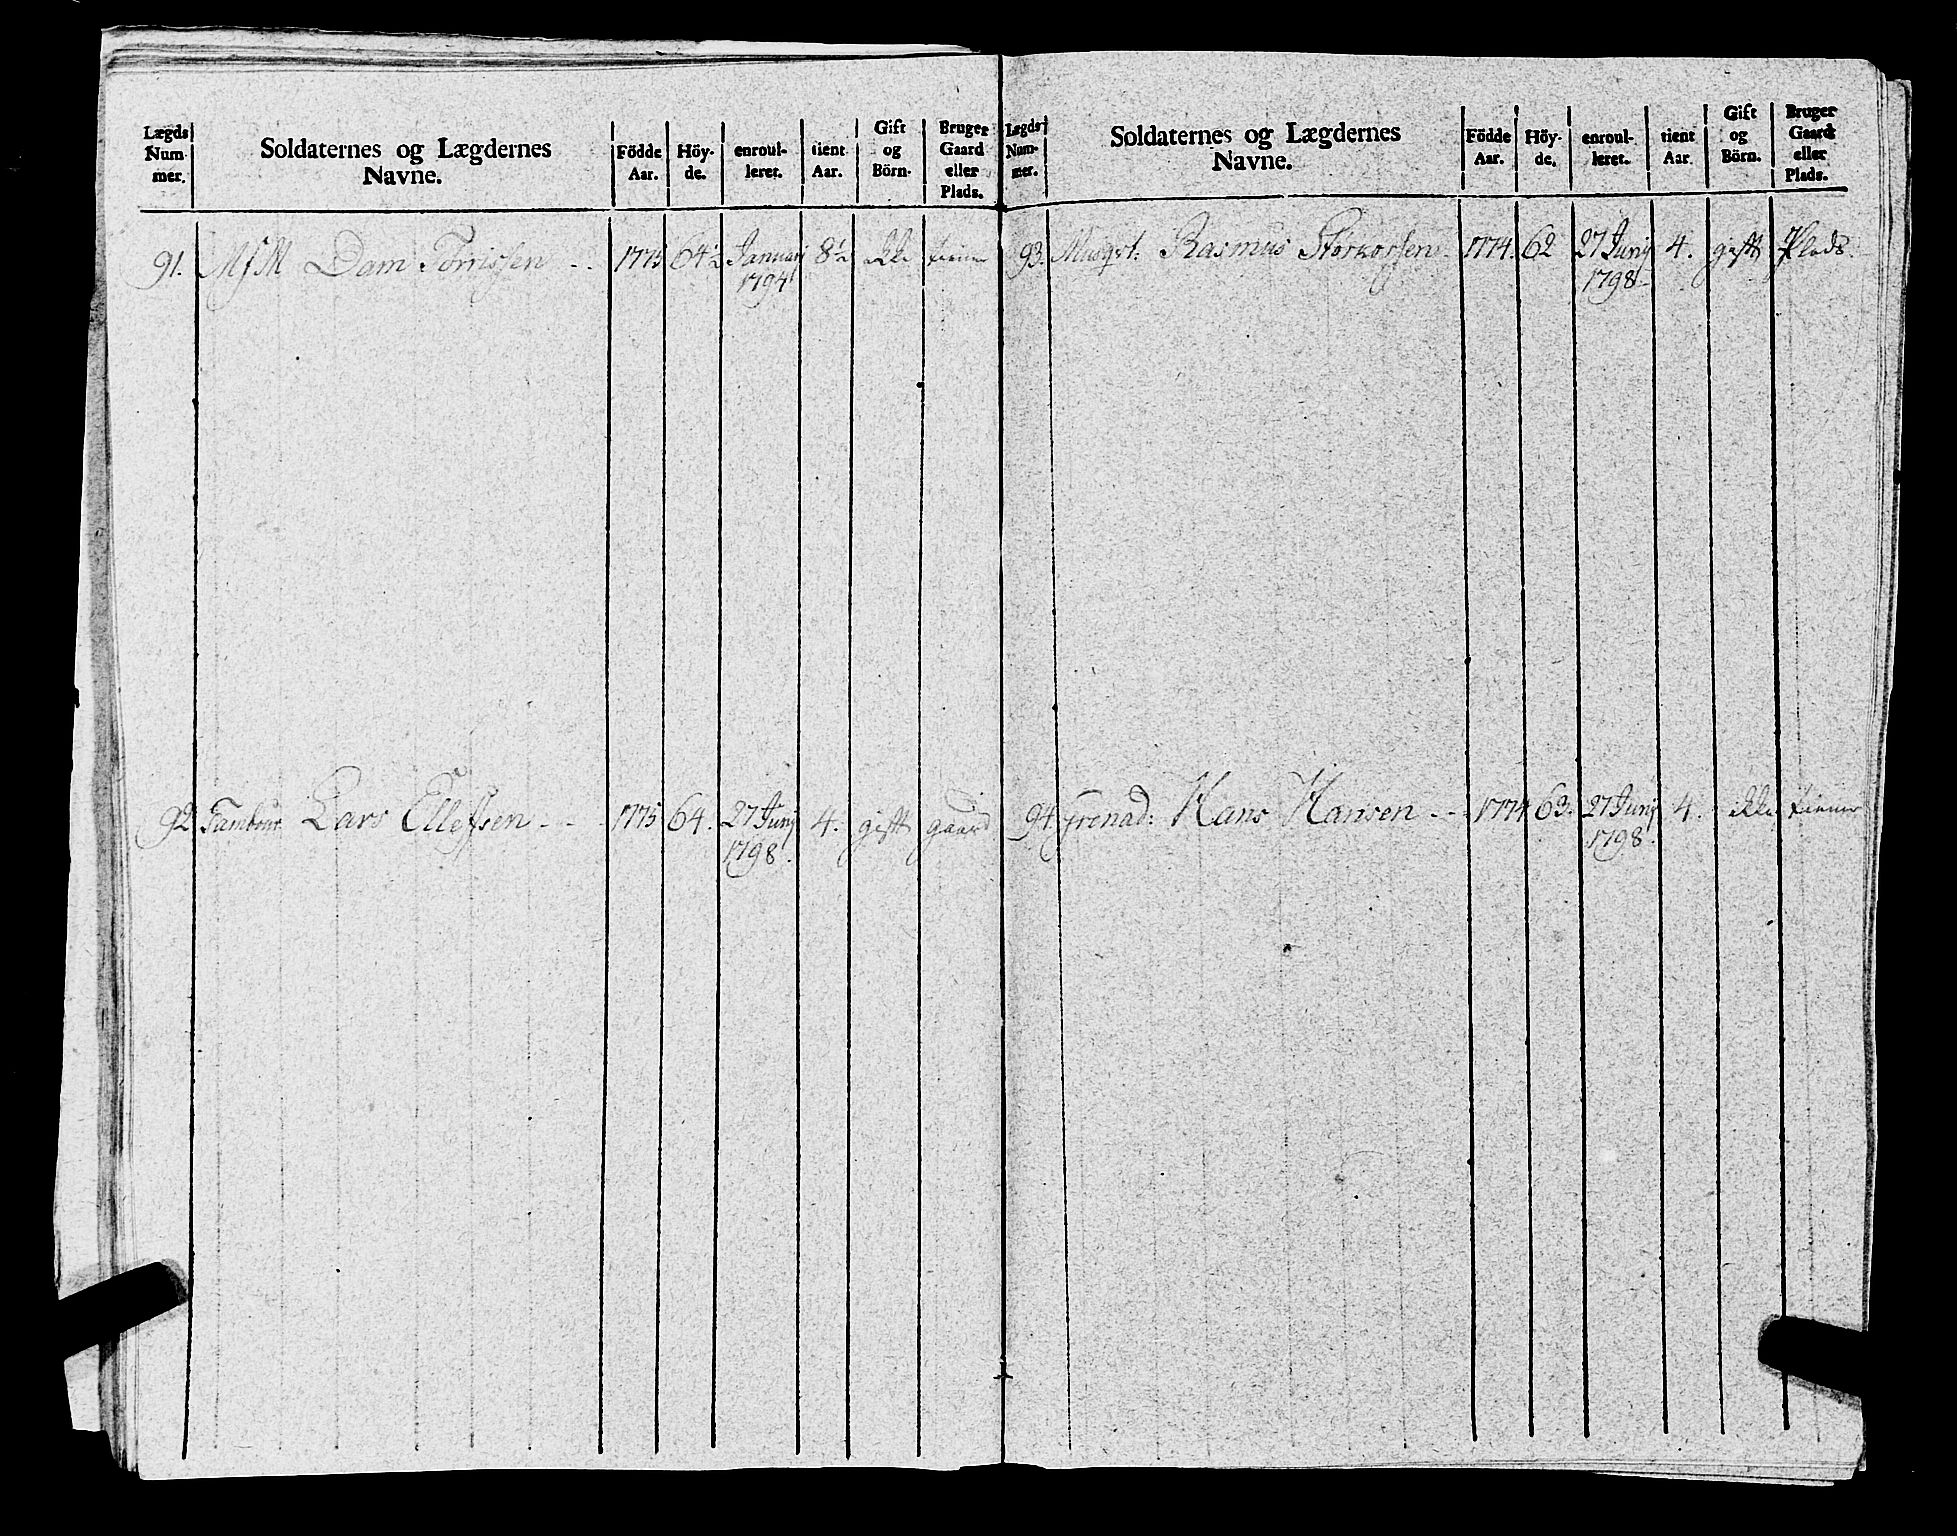 Lægds Num- mer. Soldaternes og Lægdernes Navne. Födde Aar. Höy- de. enroul- leret. tient Aar. Gift og Börn. Bruger Gaard eller Plads.
91. Dam Torrissen - - 1775 64½ Januarj 8½ ikke tiener
1794
92. Tambour Lars Ellefsen - - 1775 64. 27 Junj 4. gift gaard
1798.
Lægds Num- mer. Soldaternes og Lægdernes Navne. Födde Aar. Höy- de. enroul- leret. tient Aar. Gift og Börn. Bruger Gaard eller Plads.
93. Musqt: Rasmus Størkorsen. 1774. 62 27 Junj 4. gift Plads.
1798
94. Grenad: Hans Hansen - - 1774 63. 27 Junj 4. ikke tiener
1798.